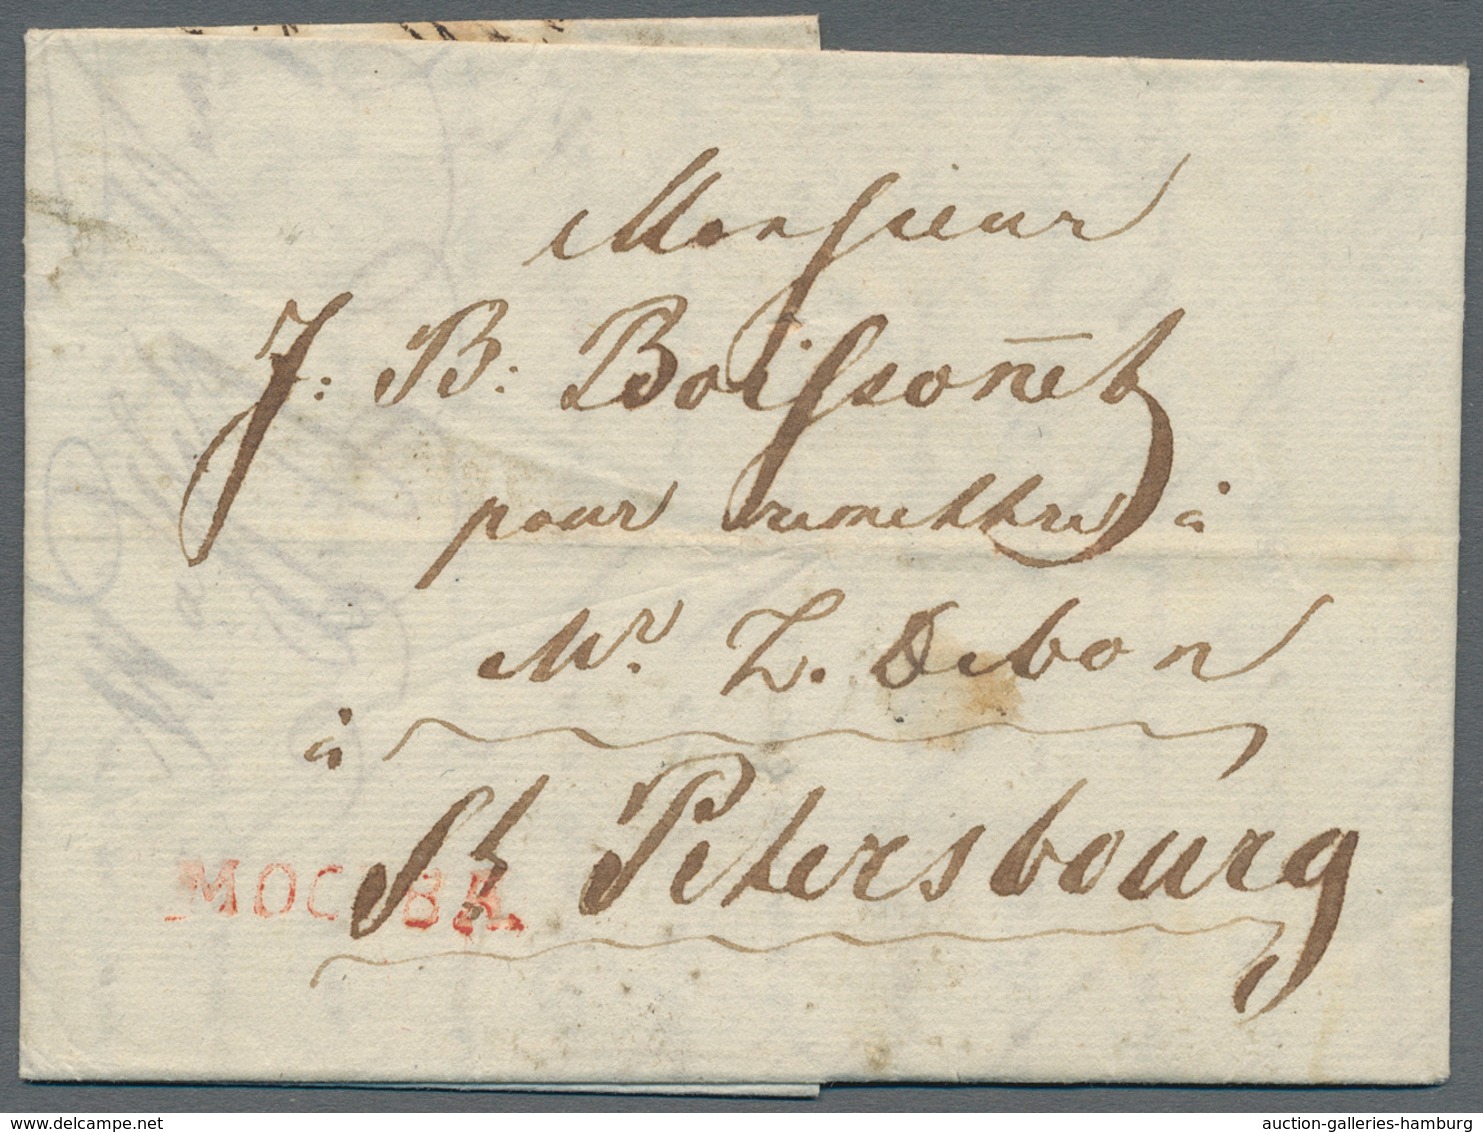 Monsieur
J: B: Boisson̄et
pour remettre à
Mr. L. Debon
à
St Petersbourg
МОСКВА
delcampe.net
auction-galleries-hamburg